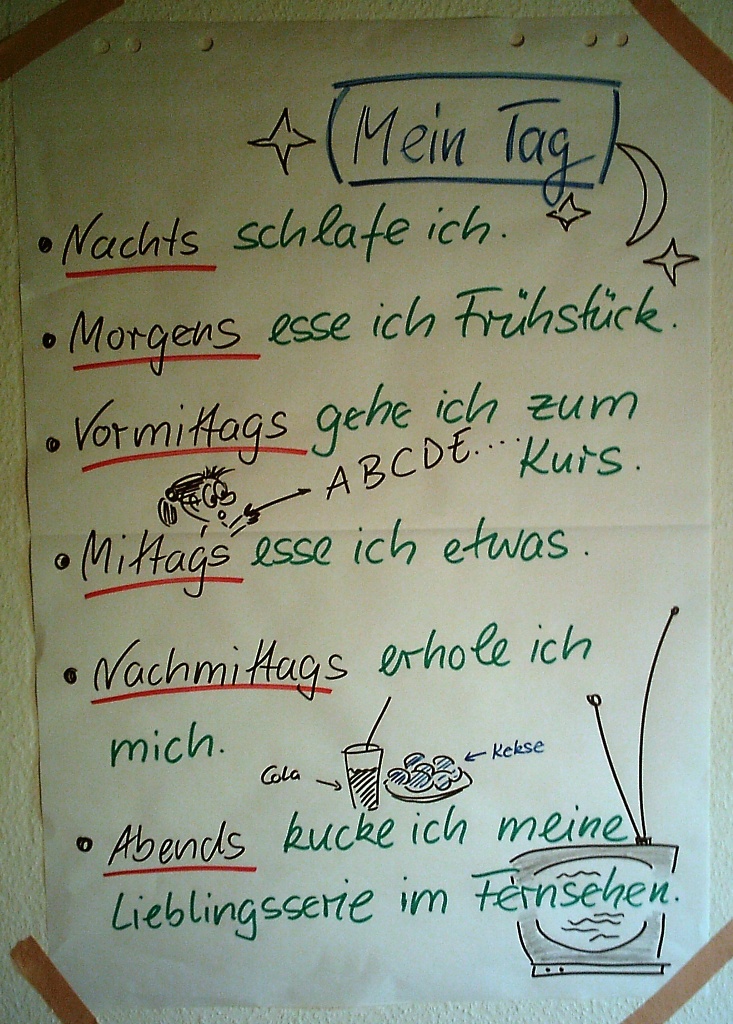 Mein Tag
• Nachts schlafe ich.
• Morgens esse ich Frühstück.
• Vormittags gehe ich zum
ABCDE.... Kurs.
• Mittags esse ich etwas.
• Nachmittags erhole ich
mich.
Cola
Kekse
• Abends kucke ich meine
Lieblingsserie im Fernsehen.